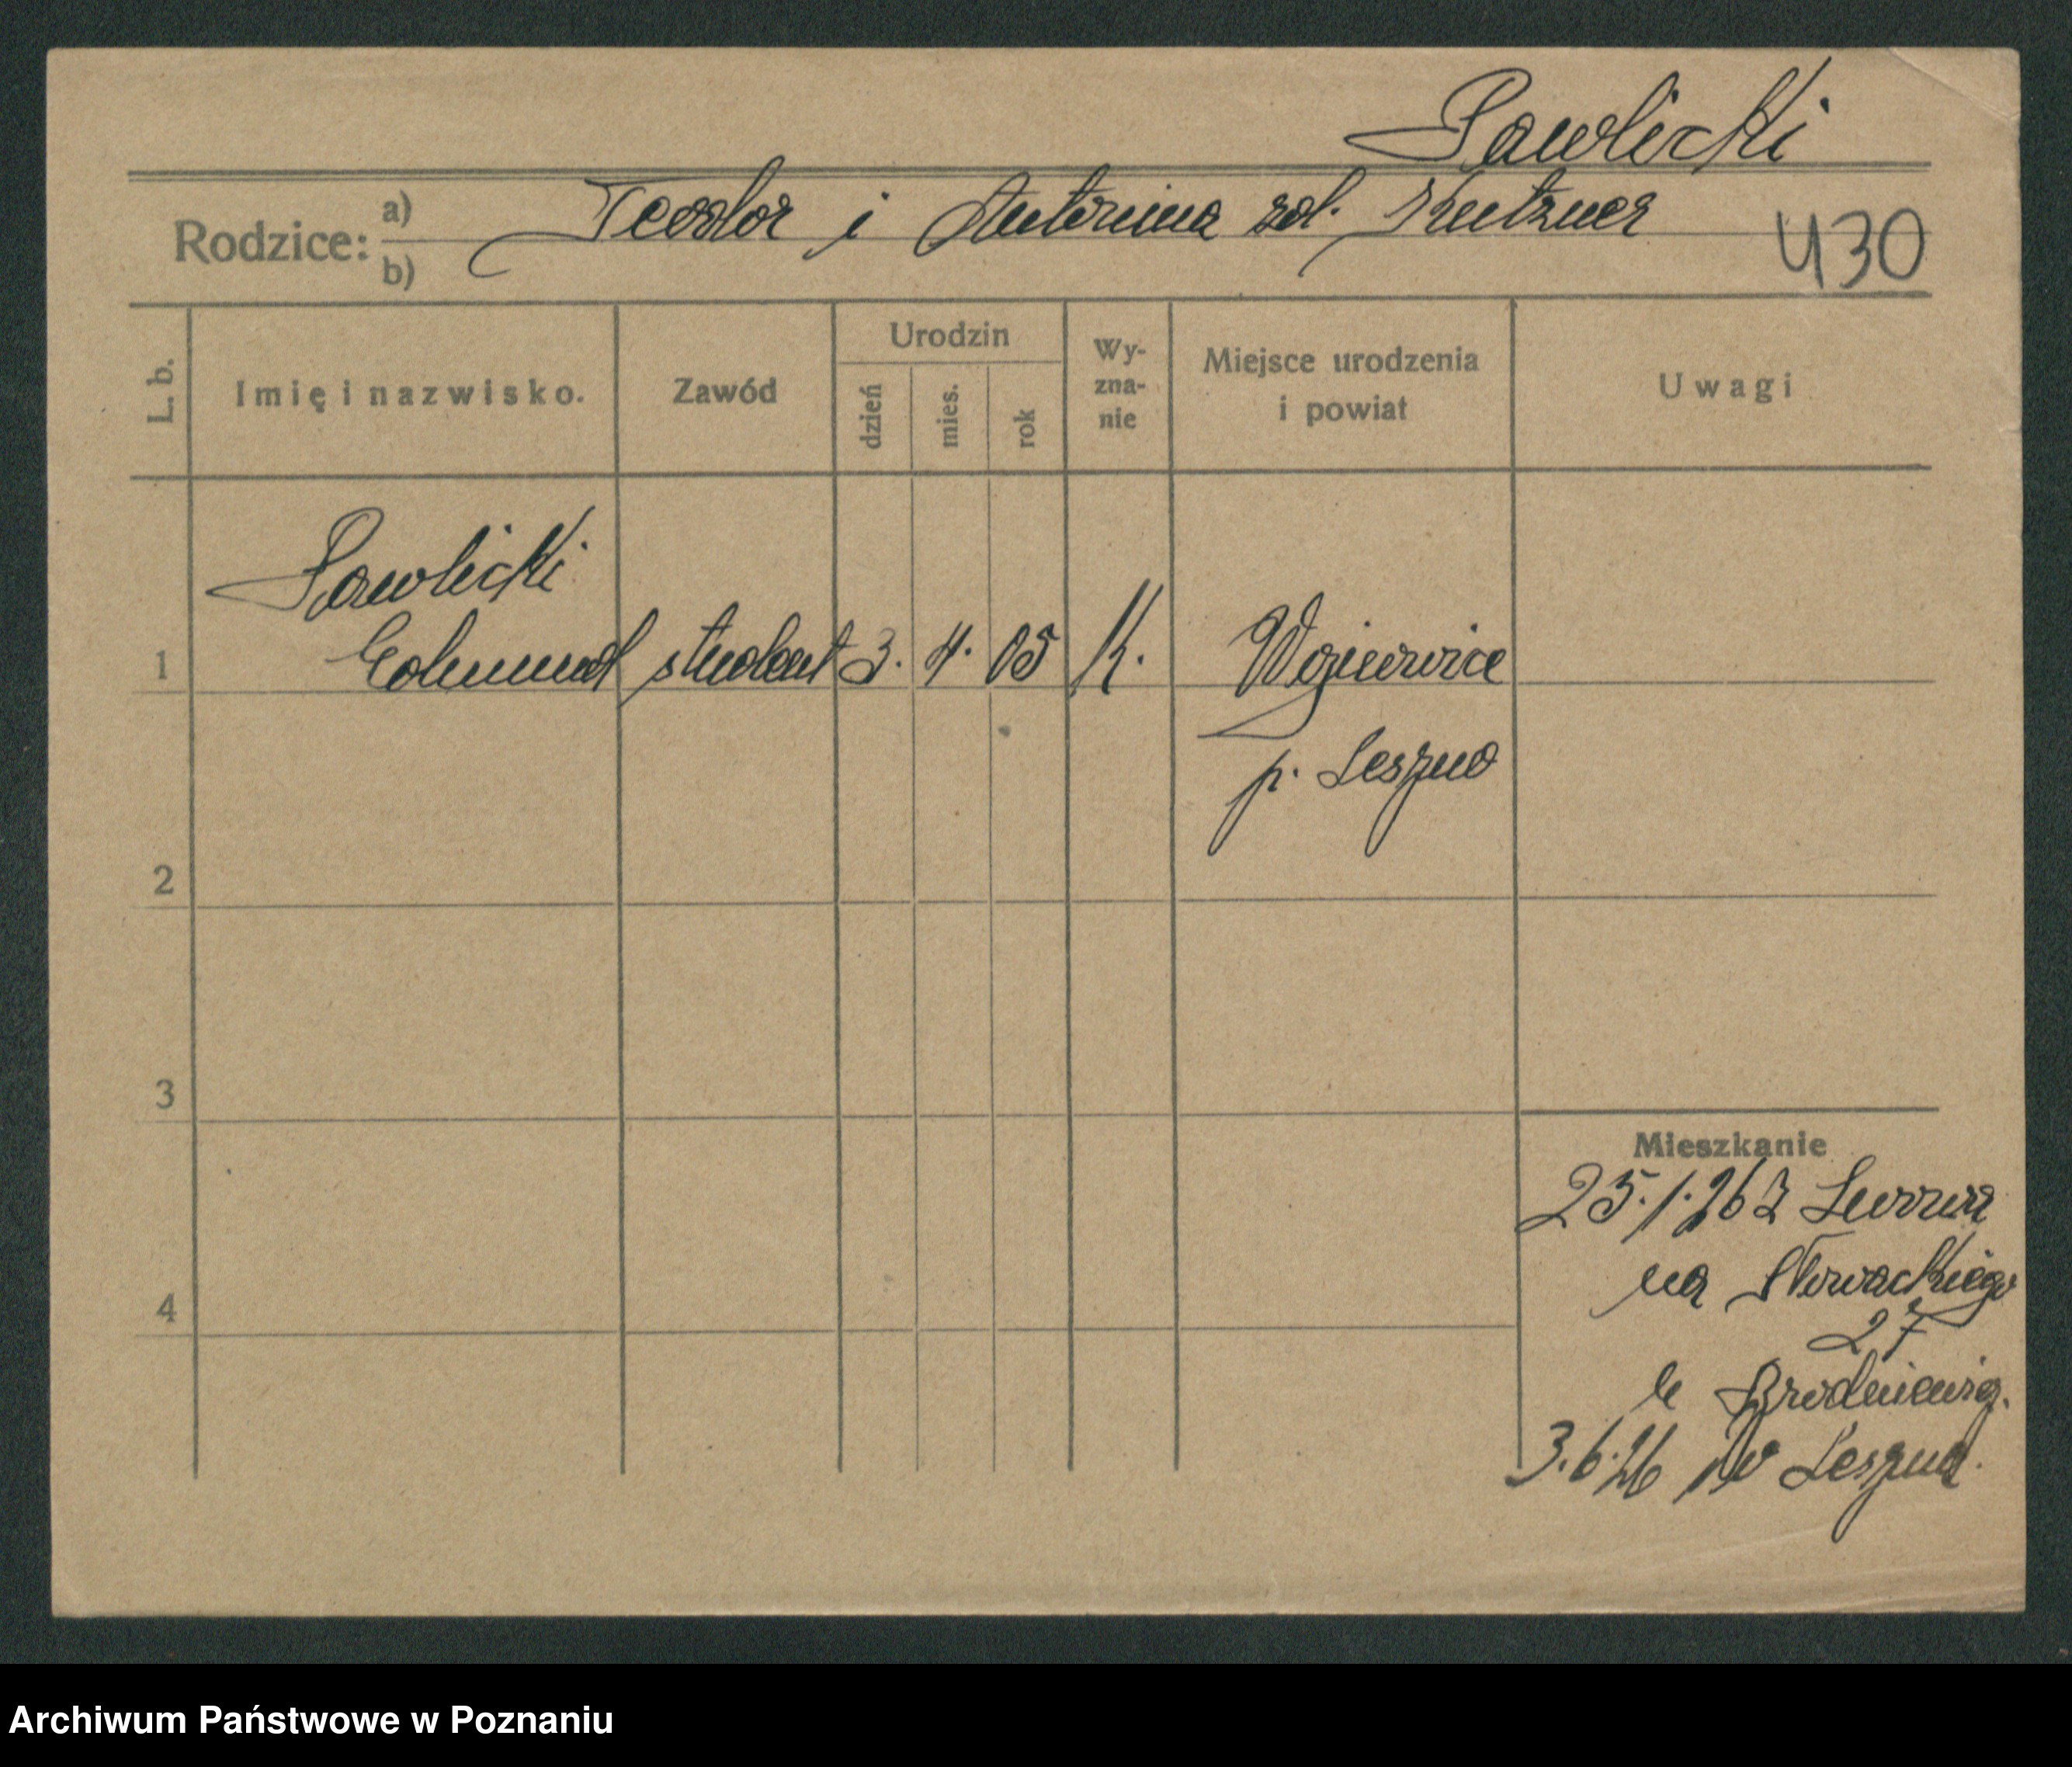 Pawlicki
Rodzice: a) Teodor i Antonina zd. Kutzner
b)
430
L. b.
Imię i nazwisko.
Zawód
Urodzin
dzień
mies.
rok
Wy-
zna-
nie
Miejsce urodzenia
i powiat
Uwagi
Pawlicki
1 Edmund student 3. 4. 05 K.
p. Leszno
2
3
4
Mieszkanie
25.1.26 z
na Słowackiego
27
u
3.6.26 do Leszna.
Archiwum Państwowe w Poznaniu